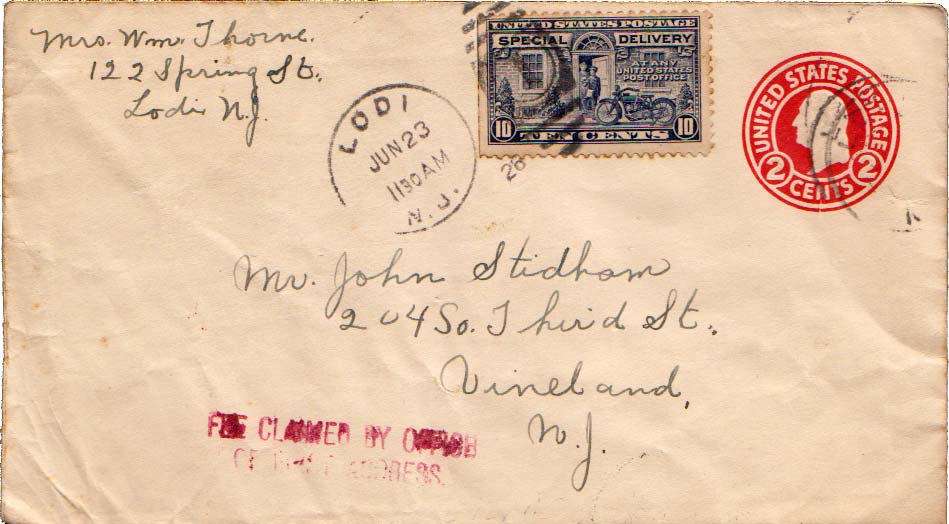 Mrs. Wm. Thorne.
122 Spring St.
Lodi N.J.
LODI
JUN 23
1130 AM
N.J.
26
UNITED STATES POSTAGE
SPECIAL DELIVERY
AT ANY
UNITED STATES
POST OFFICE
10 TEN CENTS 10
UNITED STATES POSTAGE
2 CENTS 2
Mr. John Stidham
204 So. Third St.
Vineland,
N.J.
FEE CLAIMED BY OFFICE
OF ADDRESS.